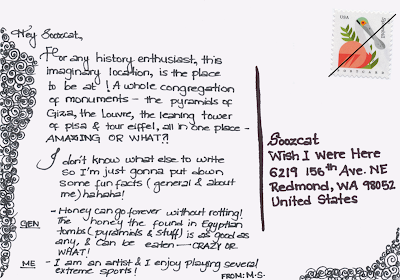 Hey Soozcat,
For any history enthusiast, this
imaginary location, is the place
to be at! A whole congregation
of monuments - the pyramids of
Giza, the Louvre, the leaning tower
of pisa & tour eiffel, all in one place -
AMAZING OR WHAT?!
I don't know what else to write
so I'm just gonna put down
some fun facts (general & about
me) hahaha!
GEN - Honey can go forever without rotting!
The honey found in Egyptian
tombs (pyramids & stuff) is as good as
any, & can be eaten — CRAZY OR
WHAT!
ME - I am an artist & I enjoy playing several
extreme sports!
FROM: M.S.
USA
POSTCARD
Soozcat
Wish I Were Here
6219 156th Ave. NE
Redmond, WA 98052
United States